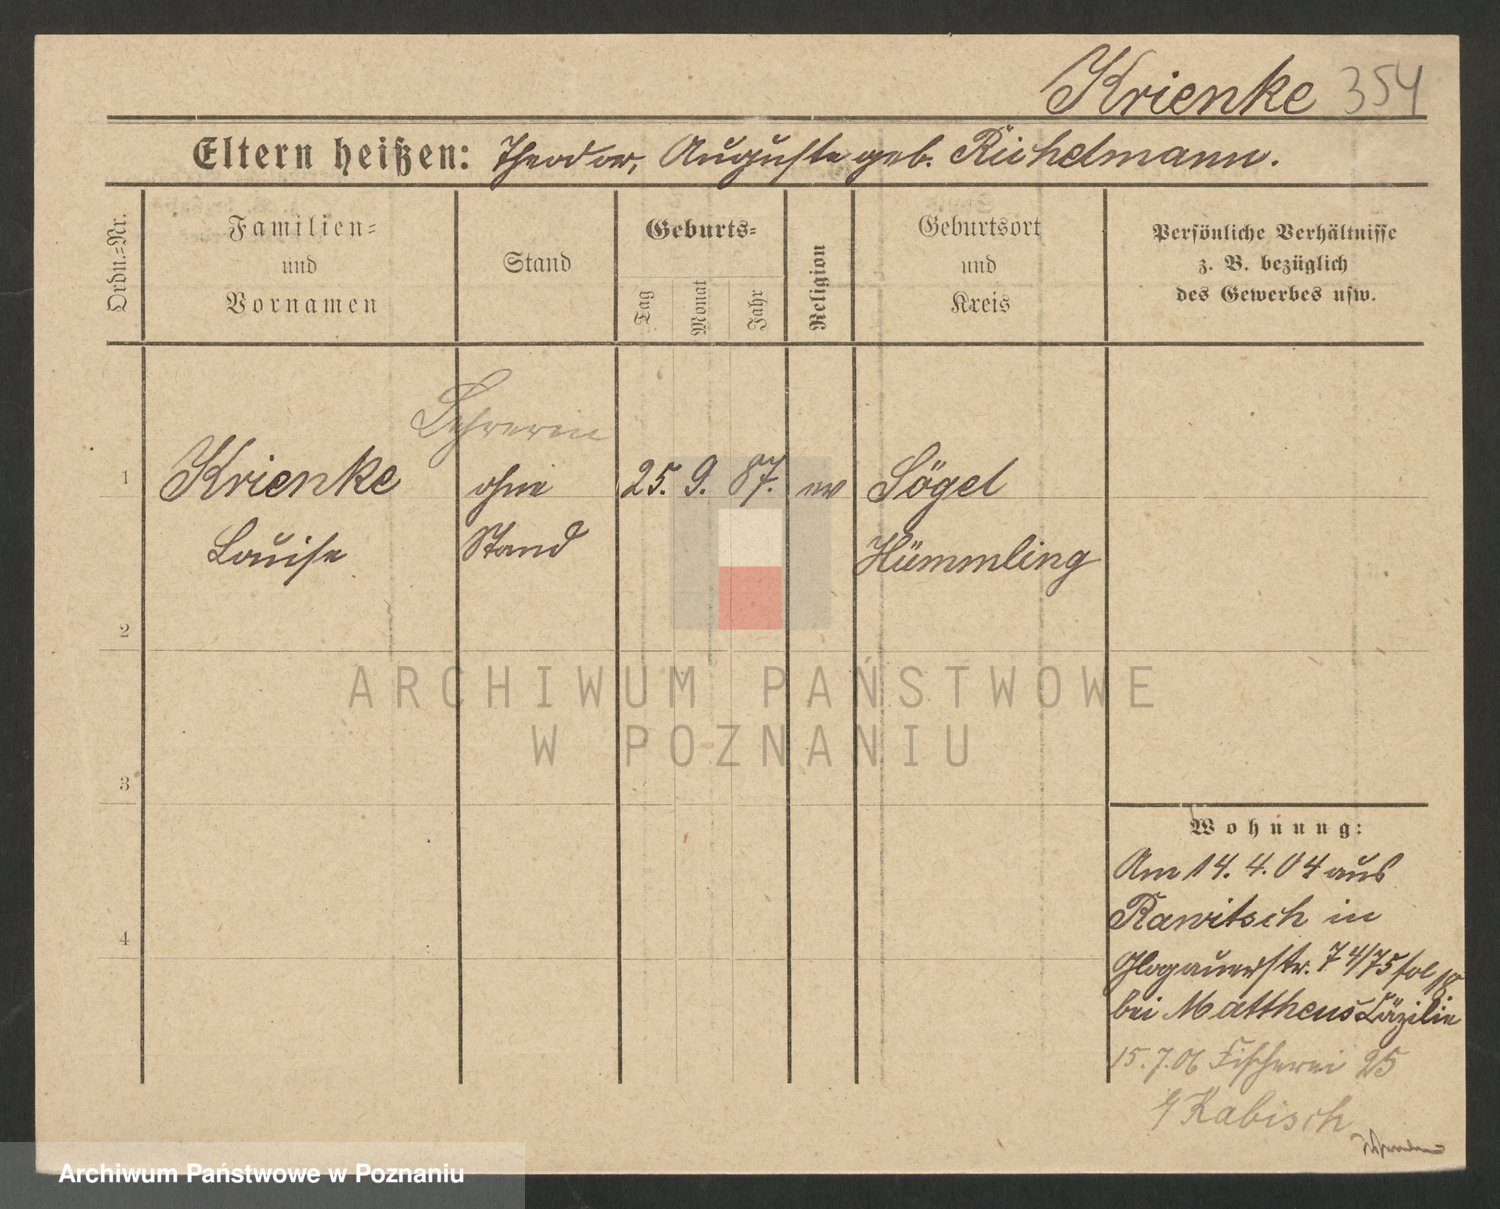 Krienke 354
Eltern heißen: Theodor, Auguste geb. Richelmann.
Ordn.=Nr.
Familien=
und
Vornamen
Stand
Geburts=
Tag
Monat
Jahr
Religion
Geburtsort
und
Kreis
Persönliche Verhältnisse
z. B. bezüglich
des Gewerbes usw.
Lehrerin
1 Krienke ohne 25. 9. 87. ev Sögel
Louise Stand Hümmling
2
3
4
ARCHIWUM PAŃSTWOWE
W POZNANIU
Wohnung:
Am 14. 4. 04 aus
Rawitsch in
Glogauerstr. 74/75
bei Mattheus Cäzilie
15.7.06 Fischerei 25
Kabisch
Archiwum Państwowe w Poznaniu